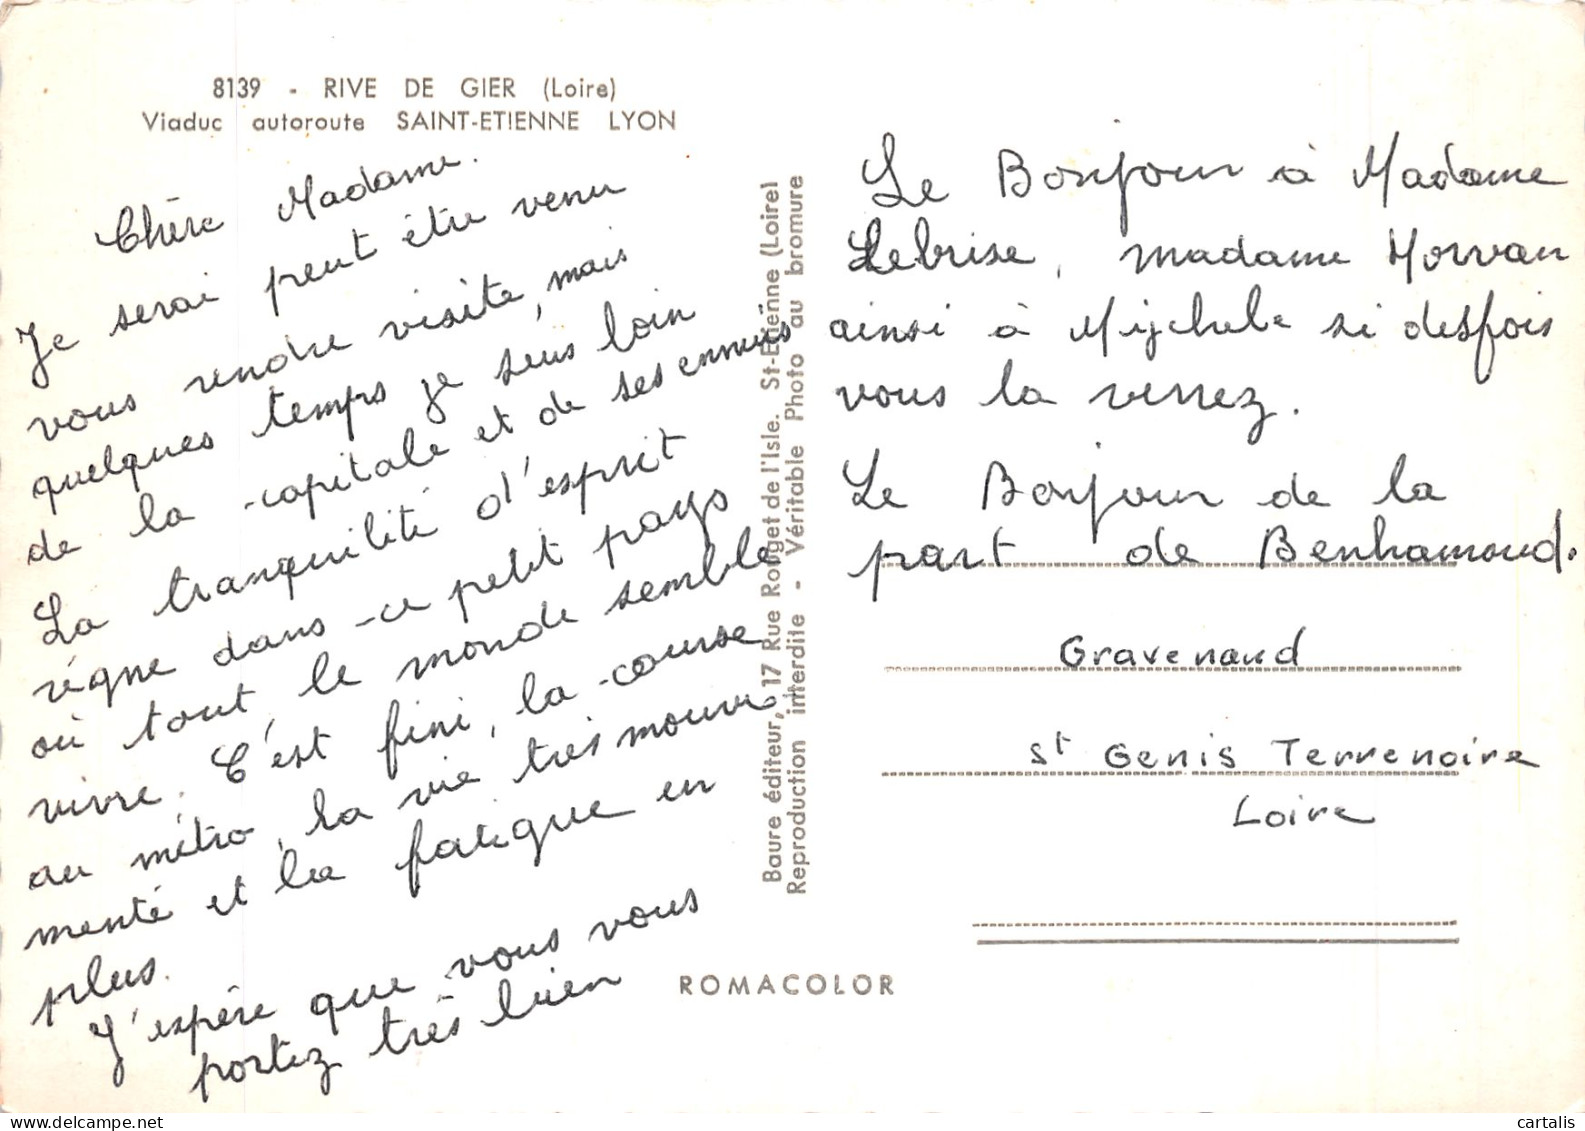 8139 - RIVE DE GIER (Loire)
Viaduc autoroute SAINT-ETIENNE LYON
Chère Madame.
Je serai peut être venu
vous rendre visite, mais
quelques temps je suis loin
de la capitale et de ses ennuis
La tranquilité d'esprit
régne dans ce petit pays
où tout le monde semble
vivre. C'est fini, la course
au métro, la vie très mouve
menté et la fatigue en
plus.
J'espère que vous vous
portez très bien
Baure éditeur, 17 Rue Rouget de l'Isle. St-Etienne (Loire)
Reproduction interdite - Véritable Photo au bromure
ROMACOLOR
Le Bonjour à Madame
Lebrise, madame Morvan
ainsi à Mijchele si desfois
vous la verrez.
Le Bonjour de la
part de Benhamoud.
Gravenand
St Genis Terrenoire
Loire
delcampe.net
cartalis